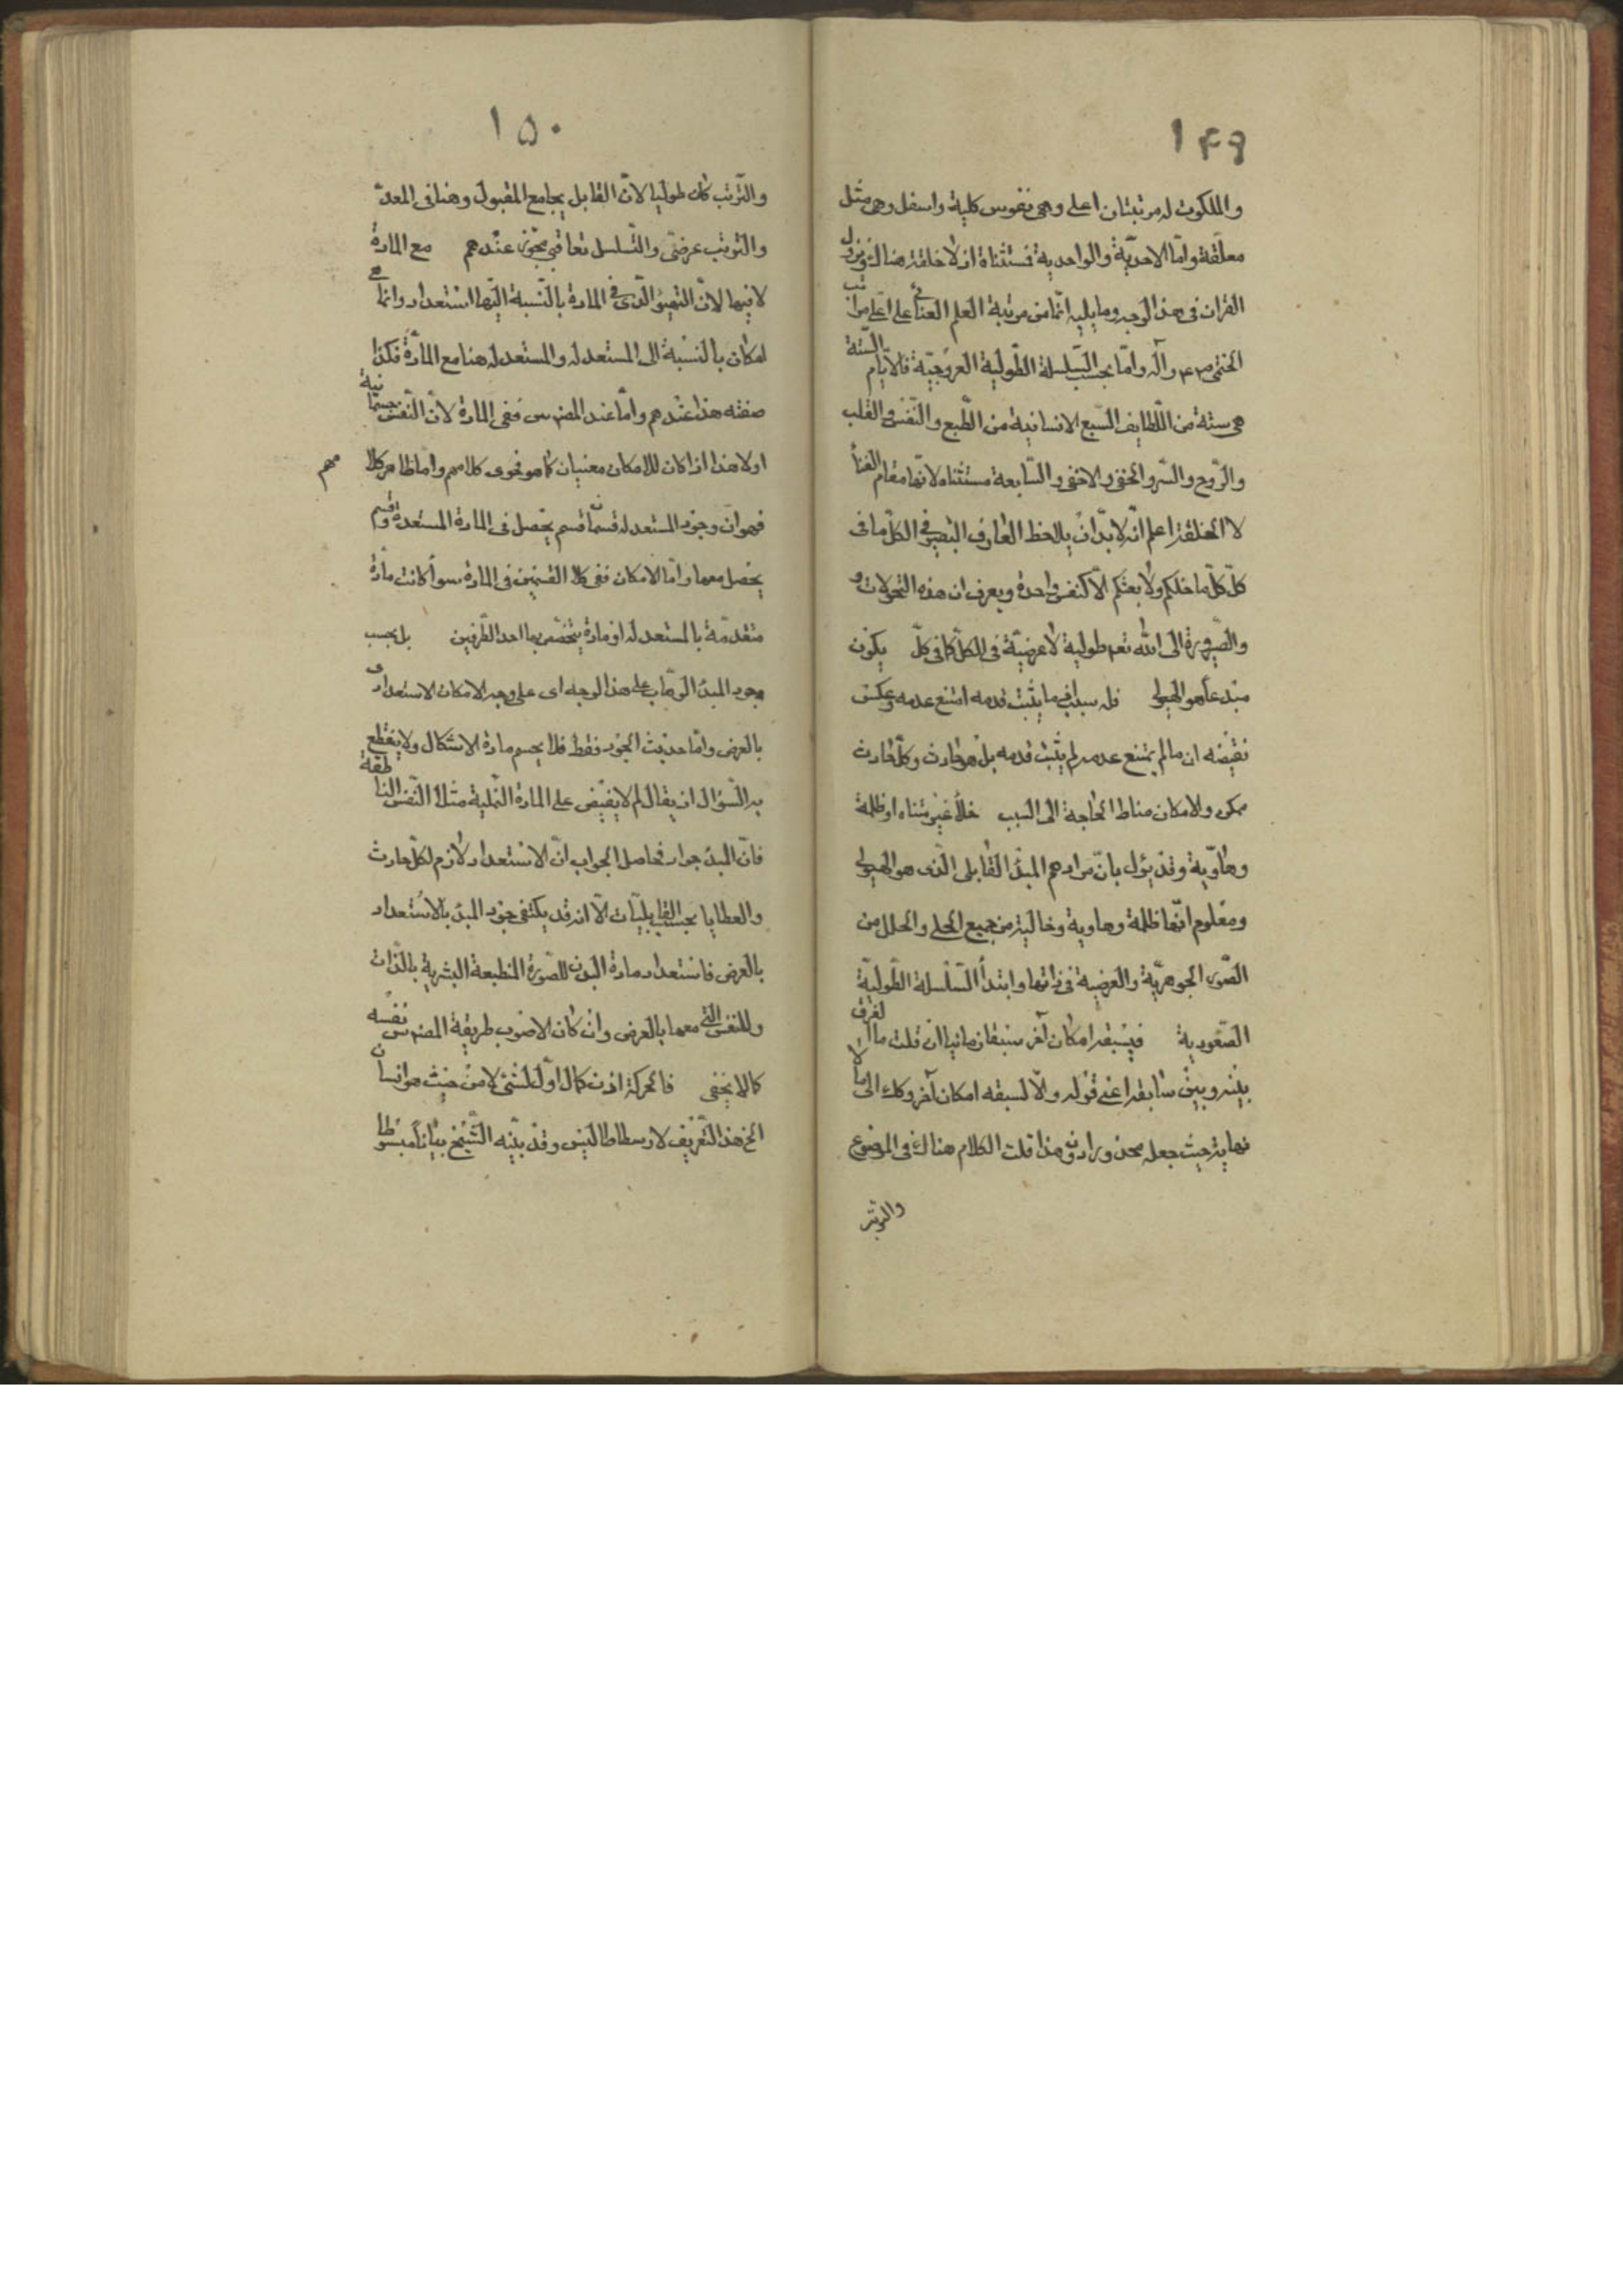 ١٤٩
والملكوت له مرتبتان اعلى وهى نفوس كلية واسفل وهى مثل
معلقة وامّا الاحديّة والواحدية فمستثناة اذ لا خلقة هناك ونزول
القران فى هذا الوجه وما يليه انّما من مرتبة العلم العنائى على اعلى مراتب
الختمى وآله وامّا بحسب السّلسلة الطّولية العروجيّة فالايّام الستة
هى ستة من اللّطايف السّبع الانسانية من الطّبع والنّفس والقلب
والرّوح والسّر والخفى والاخفى والسّابعة مستثناه لانّها مقام الفناء
لا الخلقة اعلم انّه لا بدّ ان يلاحظ العارف البصير فى الكلّ ما فى
كلّ كلّ ما خلقكم ولا بعثكم الّا كنفس واحدة ويعرف ان هذه التحولات و
والصّيرورة الى الله تعم طولية لا عرضيّة فى الكلّ كما فى كلّ يكون
مبدعا هو الهيولى فله سبب فما يثبت قدمه امتنع عدمه وعكس
نقيضه ان ما لم يمتنع عدمه لم يثبت قدمه بل هو حادث وكلّ حادث
ممكن والامكان مناط الحاجة الى السّبب خلأ غير متناه او ظلمة
وهاوية وقد يؤل بانّ مرادهم المبدء القابلى الّذى هو الهيولى
ومعلوم انّها ظلمة وهاوية وخالية من جميع الحلى والحلل من
الصّور الجوهريّة والعرضية فى ذاتها وابتدأ السّلسلة الطّوليّة
الصّعودية فيسبقه امكان آخر سبقا زمانيا ان قلت ما الفرق
بينه وبين سابقه اعنى قوله والّا لسبقه امكان آخر وكك الى ما لا
نهاية حيث جعله محذورا دون هذا قلت الكلام هناك فى الموضوع
والترتب
١٥٠
والتّرتب كان طوليا لانّ القابل يجامع المقبول وهنا فى المعدّ
والترتب عرضىّ والتّسلسل تعاقبى مجوّز عندهم مع المادة
لا فيها لانّ التهيؤ الّذى فى المادة بالنّسبة اليها استعداد وانما هو
امكان بالنّسبة الى المستعد له والمستعد له هنا مع المادّة فكذا
صفته هذا عندهم وامّا عند المصنف س ففى المادة لانّ النّفس جسمانية
اولا هذا اذا كان للامكان معنيان كما هو فحوى كلامهم وامّا ظاهر كلامهم
فهو ان وجود المستعد له قسمان قسم يحصل فى المادة المستعدة وقسم
يحصل معها وامّا الامكان ففى كلا القسمين فى المادة سوأ كانت مادّة
متقدمّة بالمستعد له او مادة يتخصّص بها احد الطّرفين بل بحسب
وجود المبدء الوهّاب على هذا الوجه اى على وجه الامكان الاستعدادى
بالعرض وامّا حديث الجود فقط فلا يحسم مادة الاشكال ولا ينقطع
به السّؤال اذ يقال لم لا يفيض على المادة النّملية مثلا النّفس الناطقة
فانّ المبدء جواد فحاصل الجواب انّ الاستعداد لازم لكلّ حادث
والعطايا بحسب القابليّات الّا انه قد يكتفى جود المبدء بالاستعداد
بالعرض فاستعداد مادة البدن للصّورة المنطبعة البشرية بالذّات
وللنفس الّتى معها بالعرض وان كان الاصوب طريقة المصنف س نفسه
كما لا يخفى فالحركة اذن كمال اوّل لشئ لا من حيث هو انسان
الخ هذا التّعريف لارسطاطاليس وقد بيّنه الشّيخ بيانا مبسوطا